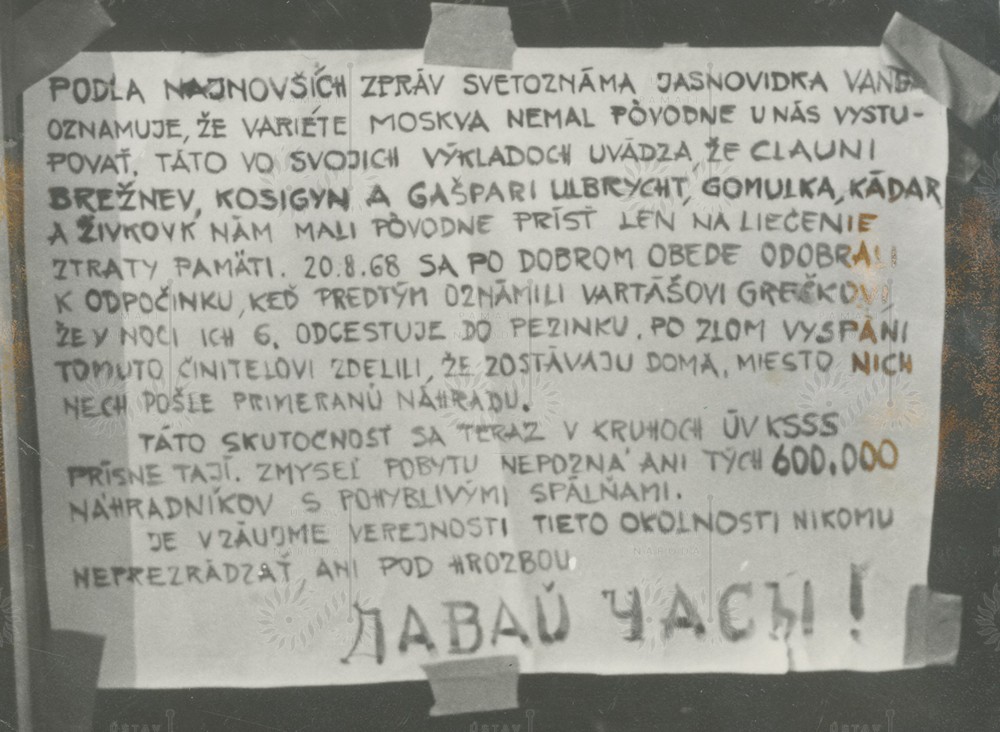 PODĽA NAJNOVŠÍCH ZPRÁV SVETOZNÁMA JASNOVIDKA VANGA
OZNAMUJE, ŽE VARIÉTE MOSKVA NEMAL PÔVODNE U NÁS VYSTU-
POVAŤ. TÁTO VO SVOJICH VÝKLADOCH UVÁDZA, ŽE CLAUNI
BREŽNEV, KOSIGYN A GAŠPARI ULBRYCHT, GOMULKA, KÁDAR
A ŽIVKOVK NÁM MALI PÔVODNE PRÍSŤ LEN NA LIEČENIE
ZTRATY PAMÄTI. 20.8.68 SA PO DOBROM OBEDE ODOBRALI
K ODPOČINKU, KEĎ PREDTÝM OZNÁMILI VARTÁŠOVI GREČKOVI
ŽE V NOCI ICH 6, ODCESTUJE DO PEZINKU. PO ZLOM VYSPÁNI
TOMUTO ČINITELOVI ZDELILI, ŽE ZOSTÁVAJU DOMA, MIESTO NICH
NECH POŠLE PRIMERANÚ NÁHRADU.
TÁTO SKUTOČNOSŤ SA TERAZ V KRUHOCH ÚV KSSS
PRÍSNE TAJÍ. ZMYSEL POBYTU NEPOZNÁ ANI TÝCH 600.000
NÁHRADNÍKOV S POHYBLIVÝMI SPÁLŇAMI.
JE V ZÁUJME VEREJNOSTI TIETO OKOLNOSTI NIKOMU
NEPREZRÁDZAŤ ANI POD HROZBOU
ДАВАЙ ЧАСЫ!